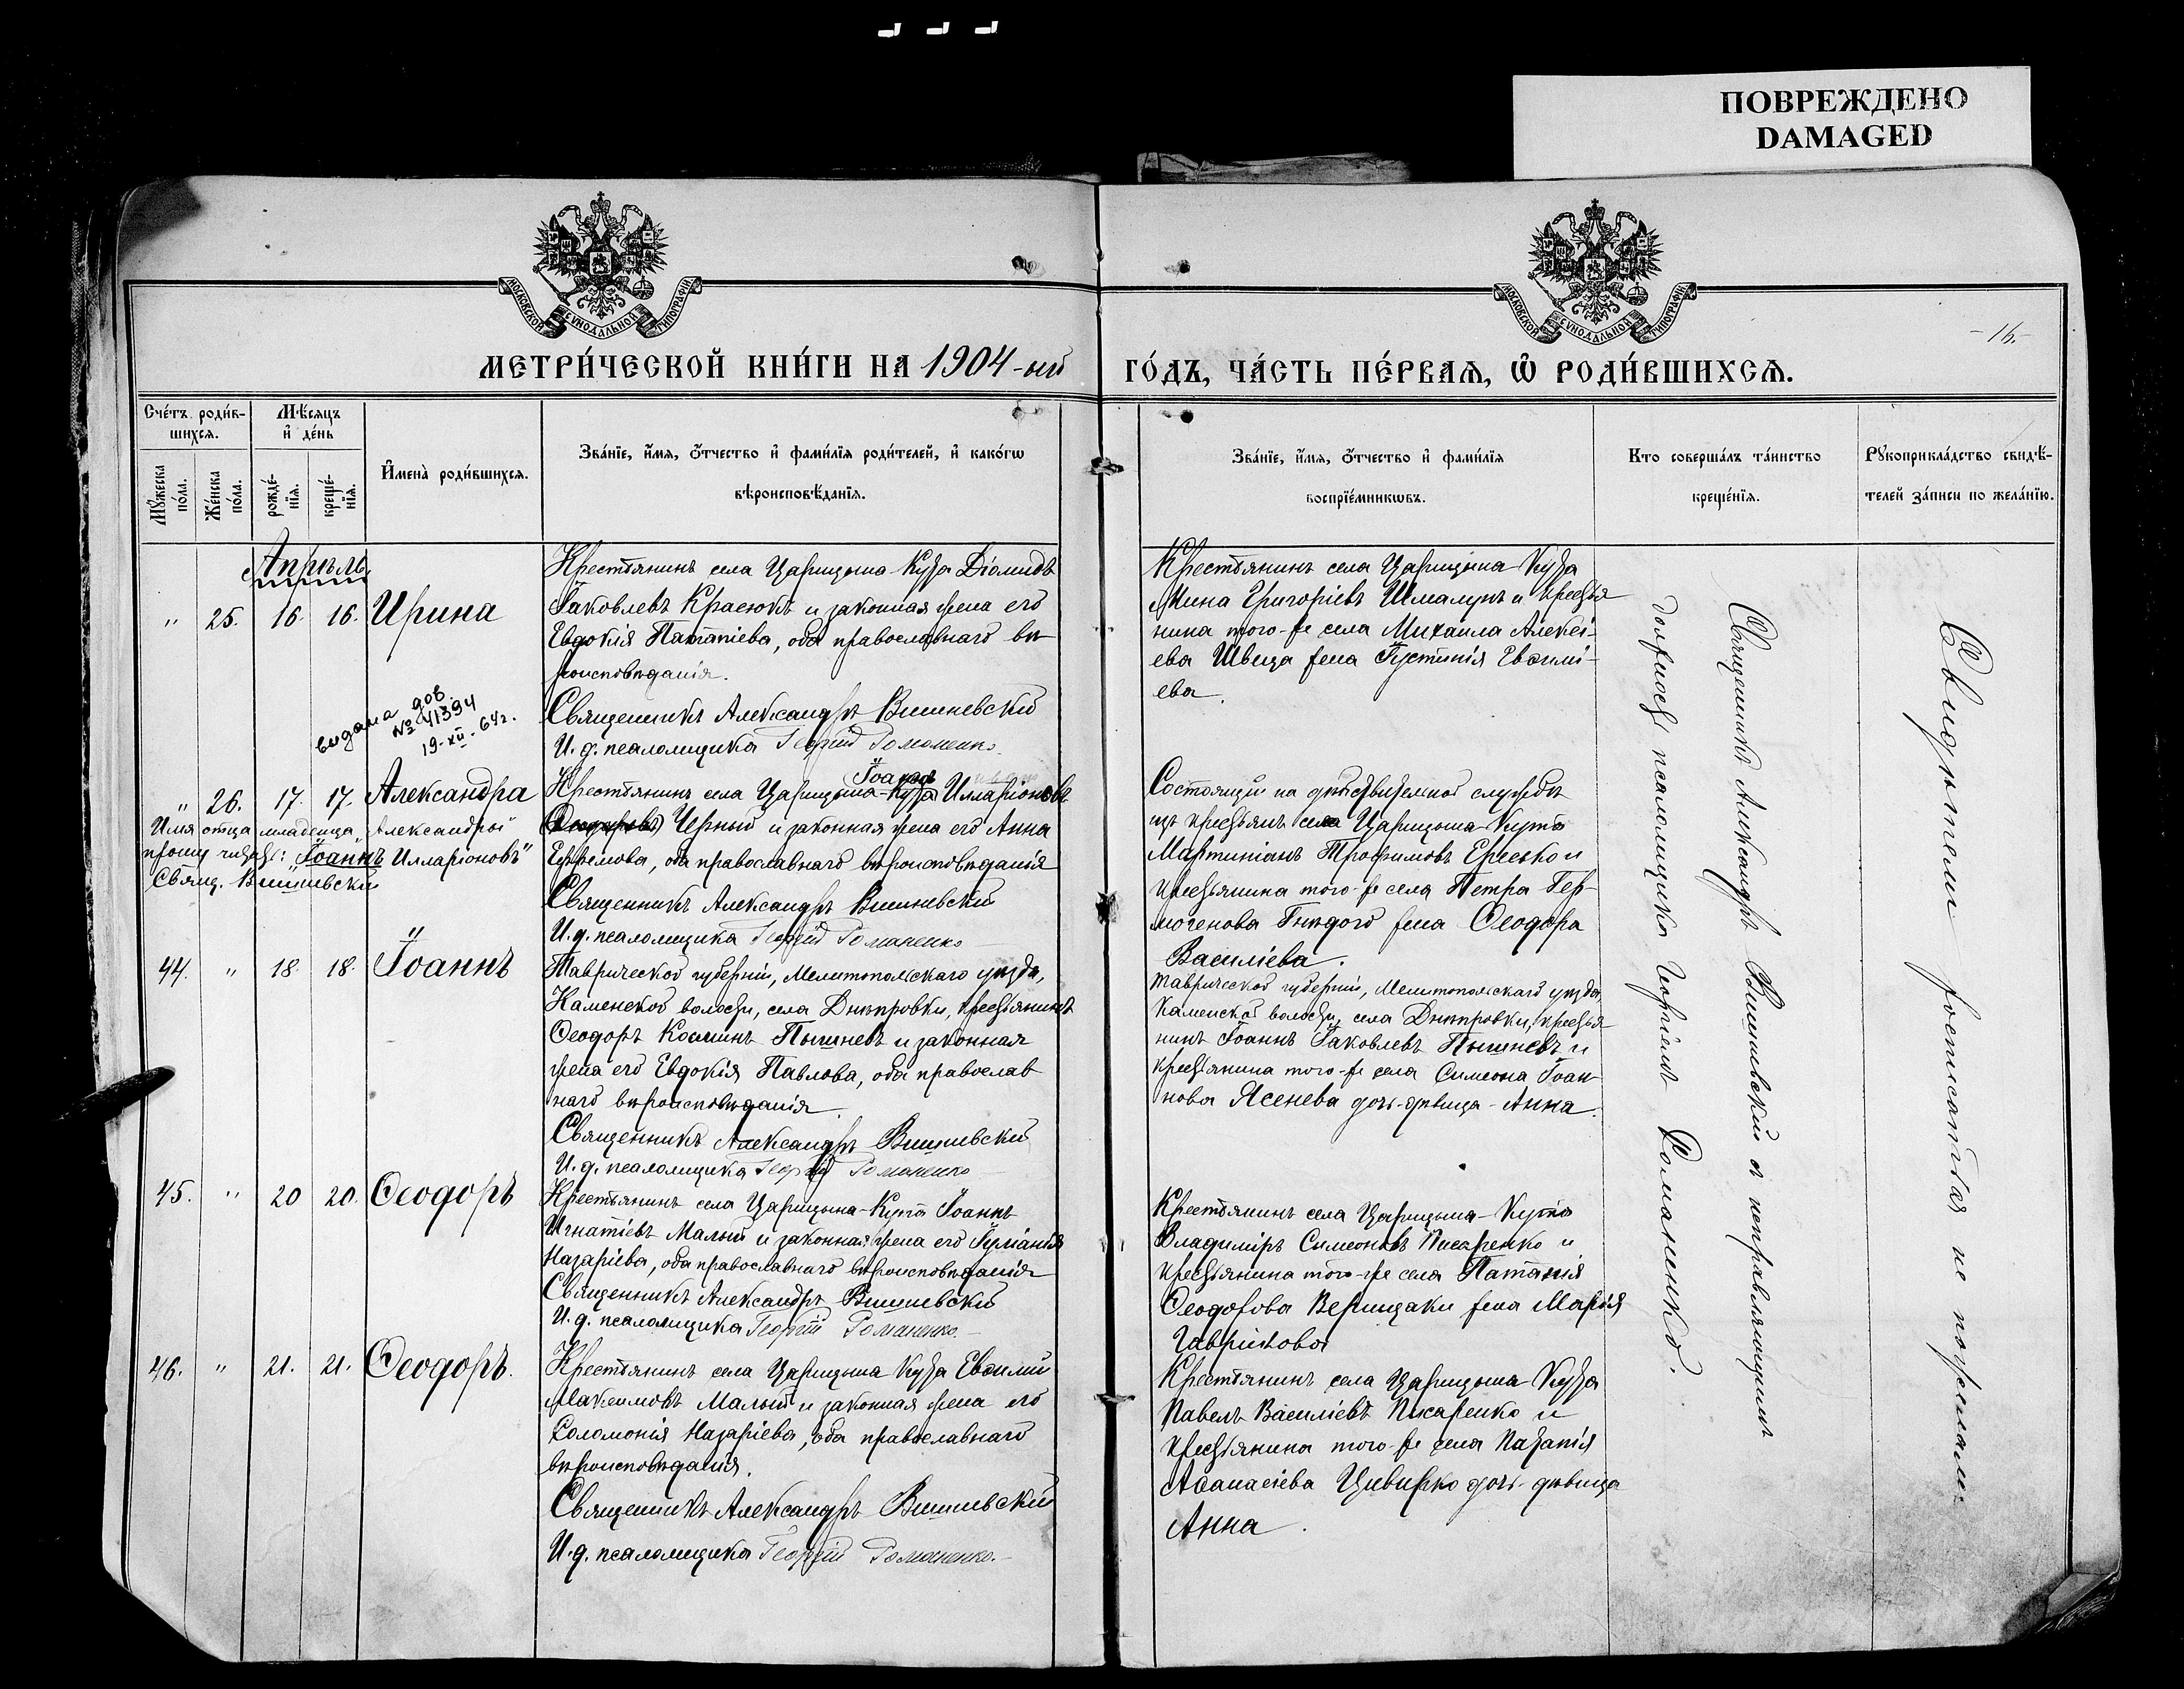 ПОВРЕЖДЕНО
DAMAGED
МОСКОВСКОЙ СѴНОДАЛЬНОЙ ТИПОГРАФІИ
МОСКОВСКОЙ СѴНОДАЛЬНОЙ ТИПОГРАФІИ
-16.-
МЕТРИ́ЧЕСКОЙ КНИ́ГИ НА 1904-ый
ГО́ДЪ, ЧА́СТЬ ПЕ́РВАѦ, Ѿ РОДИ́ВШИХСѦ.
Сче́тъ роди́в-
шихсѧ.
Мѣ́сѧцъ
и҆ де́нь
Мꙋ́жеска
по́ла.
Же́нска
по́ла.
рожде́-
нїѧ.
креще́-
нїѧ.
И҆мена̀ роди́вшихсѧ.
Зва́нїе, и҆́мѧ, ѻ҆́тчество и҆ фами́лїѧ роди́телей, и҆ како́гѡ
вѣроисповѣ́данїѧ.
Зва́нїе, и҆́мѧ, ѻ҆́тчество и҆ фами́лїѧ
воспрїе́мникѡвъ.
Кто соверша́лъ та́инство
креще́нїѧ.
Рꙋкоприкла́дство свидѣ́-
телей за́писи по жела́нїю.
Апрѣль
„ 25. 16. 16. Ирина
Крестьянинъ села Царицына-Кута Діомидъ
Іаковлевъ Красюкъ и законная жена его
Евдокія Патапіева, оба православнаго вѣ-
роисповѣданія.
Священникъ Александръ Вишневскій
И. д. псаломщика Георгій Романенко
Крестьянинъ села Царицына Кута
Мина Григоріевъ Шмалунъ и крестья
нина того-же села Михаила Алексі-
ева Швеца жена Іустинія Евѳимі-
ева.
видана дов.
№ 41394
19-XII-64г.
„ 26. 17. 17. Александра
Имя отца младенца „Александры“
прошу читать: „Іоаннъ Илларіоновъ“
Свящ. Вишневскій
Іоаннъ
Крестьянинъ села Царицына-Кута Илларіоновъ
Черный и законная жена его Анна
Ефремова, оба православнаго вѣроисповѣданія
Священникъ Александръ Вишневскій
И. д. псаломщика Георгій Романенко
Состоящій на дѣйствительной службѣ
изъ крестьянъ села Царицына-Кута
Мартиніанъ Трофимовъ Ересько и
крестьянина того-же села Петра Гер-
могенова Гнѣдого жена Ѳеодора
Василіева.
44. „ 18. 18. Іоаннъ
Таврической губерніи, Мелитопольскаго уѣзда,
Каменской волости, села Днѣпровки, крестьянинъ
Ѳеодоръ Косминъ Пышневъ и законная
жена его Евдокія Павлова, оба православ
наго вѣроисповѣданія.
Священникъ Александръ Вишневскій
И. д. псаломщика Георгій Романенко
Таврической губерніи, Мелитопольскаго уѣзда,
Каменской волости, села Днѣпровки, крестья
нинъ Іоаннъ Іаковлевъ Пышневъ и
крестьянина того-же села Симеона Іоан-
нова Ясенева дочь-дѣвица-Анна.
45. „ 20 20. Ѳеодоръ
Крестьянинъ села Царицына-Кута Іоаннъ
Игнатіевъ Малый и законная жена его Іуліанія
Назаріева, оба православнаго вѣроисповѣданія
Священникъ Александръ Вишневскій
И. д. псаломщика Георгій Романенко.
Крестьянинъ села Царицына-Кута
Владиміръ Симеоновъ Писаренко и
крестьянина того-же села Патапія
Ѳеодорова Верещаки жена Марія
Гаврилова
46. „ 21. 21. Ѳеодоръ.
Крестьянинъ села Царицына Кута Евѳимій
Максимовъ Малый и законная жена его
Соломонія Назаріева, оба православнаго
вѣроисповѣданія.
Священникъ Александръ Вишневскій
И. д. псаломщика Георгій Романенко.
Крестьянинъ села Царицына Кута
Павелъ Василіевъ Писаренко и
крестьянина того-же села Патапія
Аѳанасіева Цивирко дочь-дѣвица
Анна.
Священникъ Александръ Вишневскій съ исправляющимъ
должность псаломщика Георгіемъ Романенко.
Свидѣтели росписаться не пожелали.